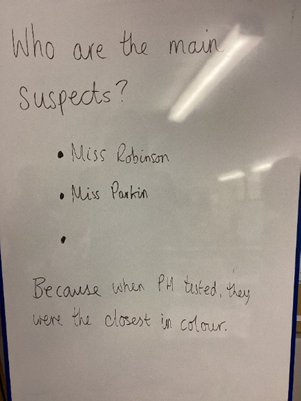 Who are the main
suspects?
• Miss Robinson
• Miss Parkin
•
Because when PH tested, they
were the closest in colour.